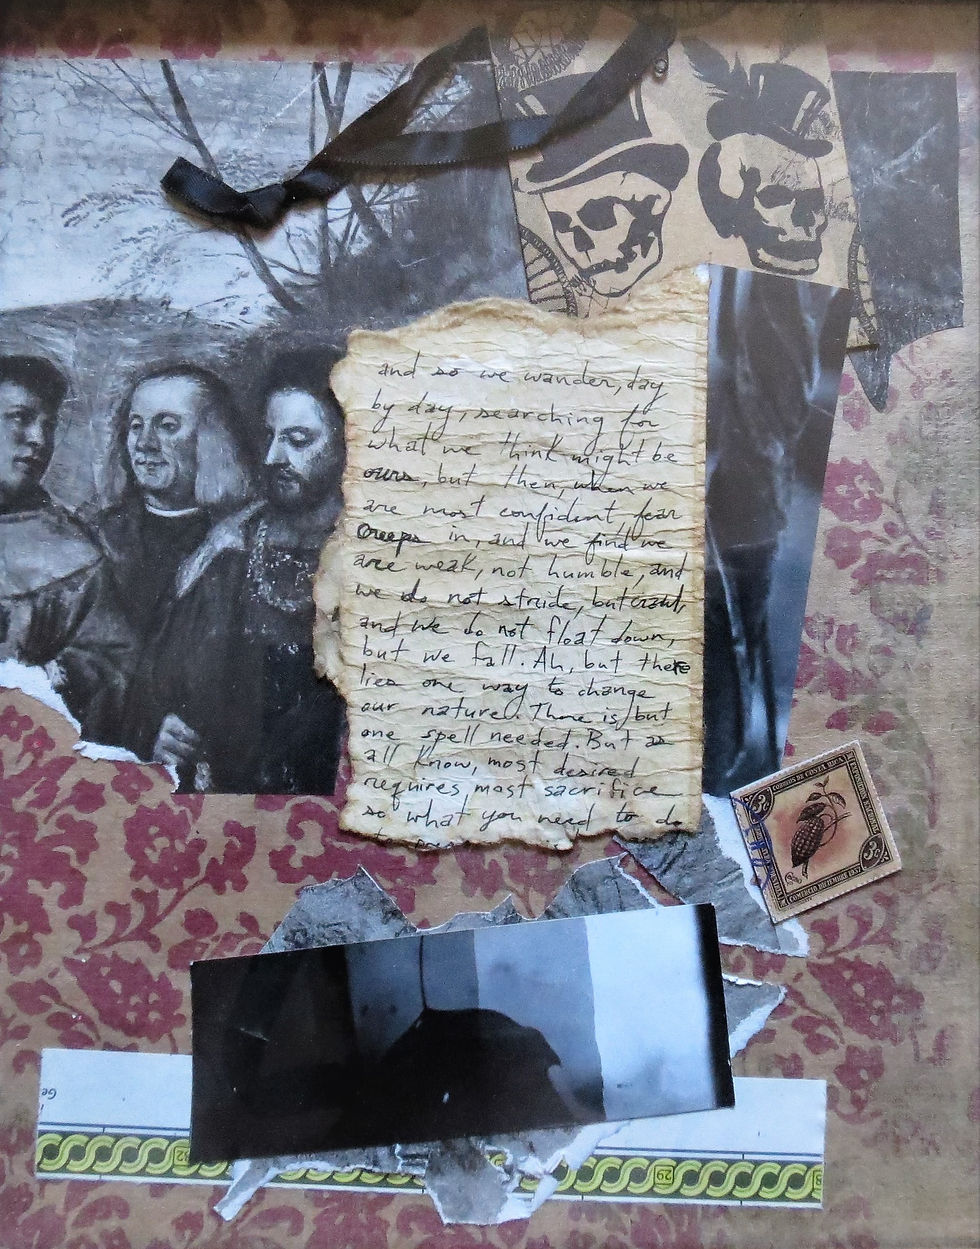 and so we wander, day
by day, searching for
what we think might be
ours, but then, when we
are most confident fear
creeps in, and we find we
are weak, not humble, and
we do not stride, but crawl,
and we do not float down,
but we fall. Ah, but there
lies one way to change
our nature. There is but
one spell needed. But as
all know, most desired
requires most sacrifice
so what you need to do
CORREOS DE COSTA RICA
3c
3c
COMERCIO DICIEMBRE 1937
Ge
32
29